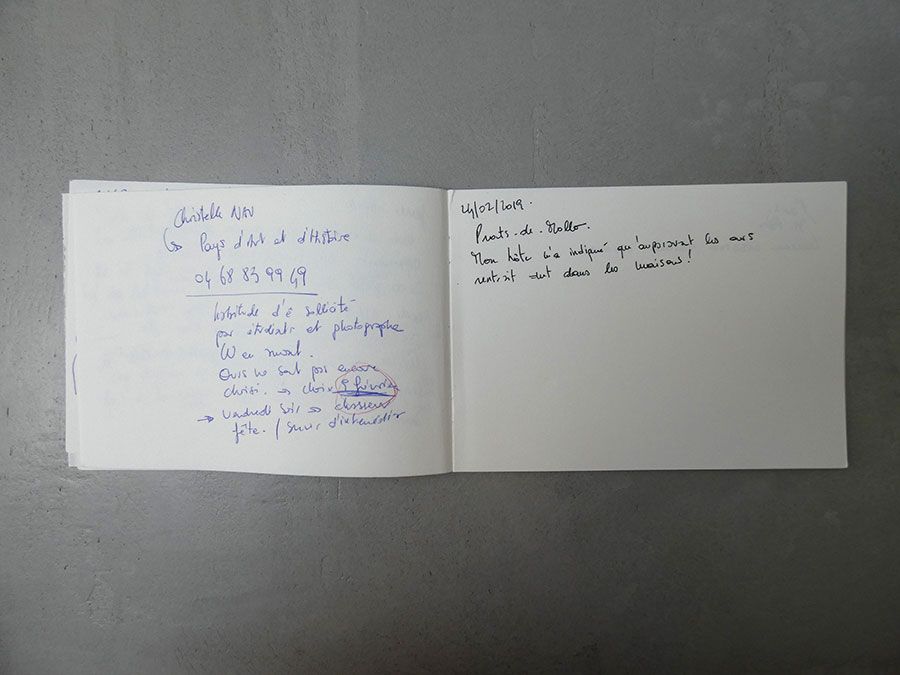 Christelle NAU
↳ Pays d'Art et d'Histoire
04 68 83 99 49
habitude d'ê sollicité
par étudiants et photographe
W en amont.
Ours ne sont pas encore
choisi. → choix 9 février
→ vendredi soir → chasseurs
fête. / Servir d'intermédiaire
24/02/2019.
Prats-de-Mollo.
Mon hôte m'a indiqué qu'auparavant les ours
rentrait dans les maisons!